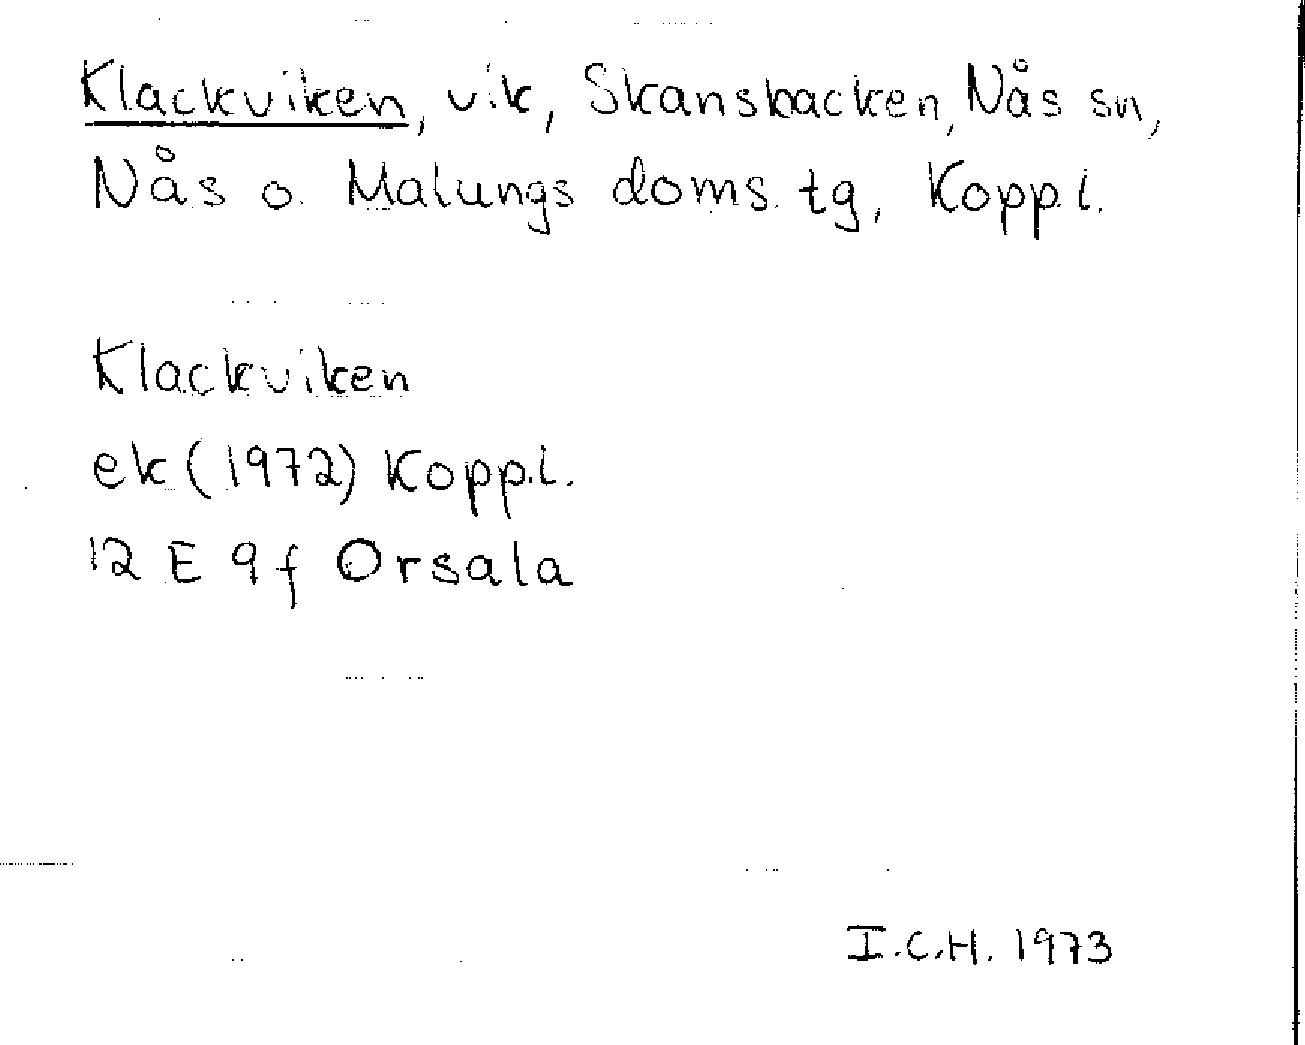 Klackviken, vik, Skansbacken, Nås sn,
Nås o. Malungs doms.tg, Kopp.l.
Klackviken
ek (1972) Kopp.l.
12 E 9f Orsala
I.C.H. 1973